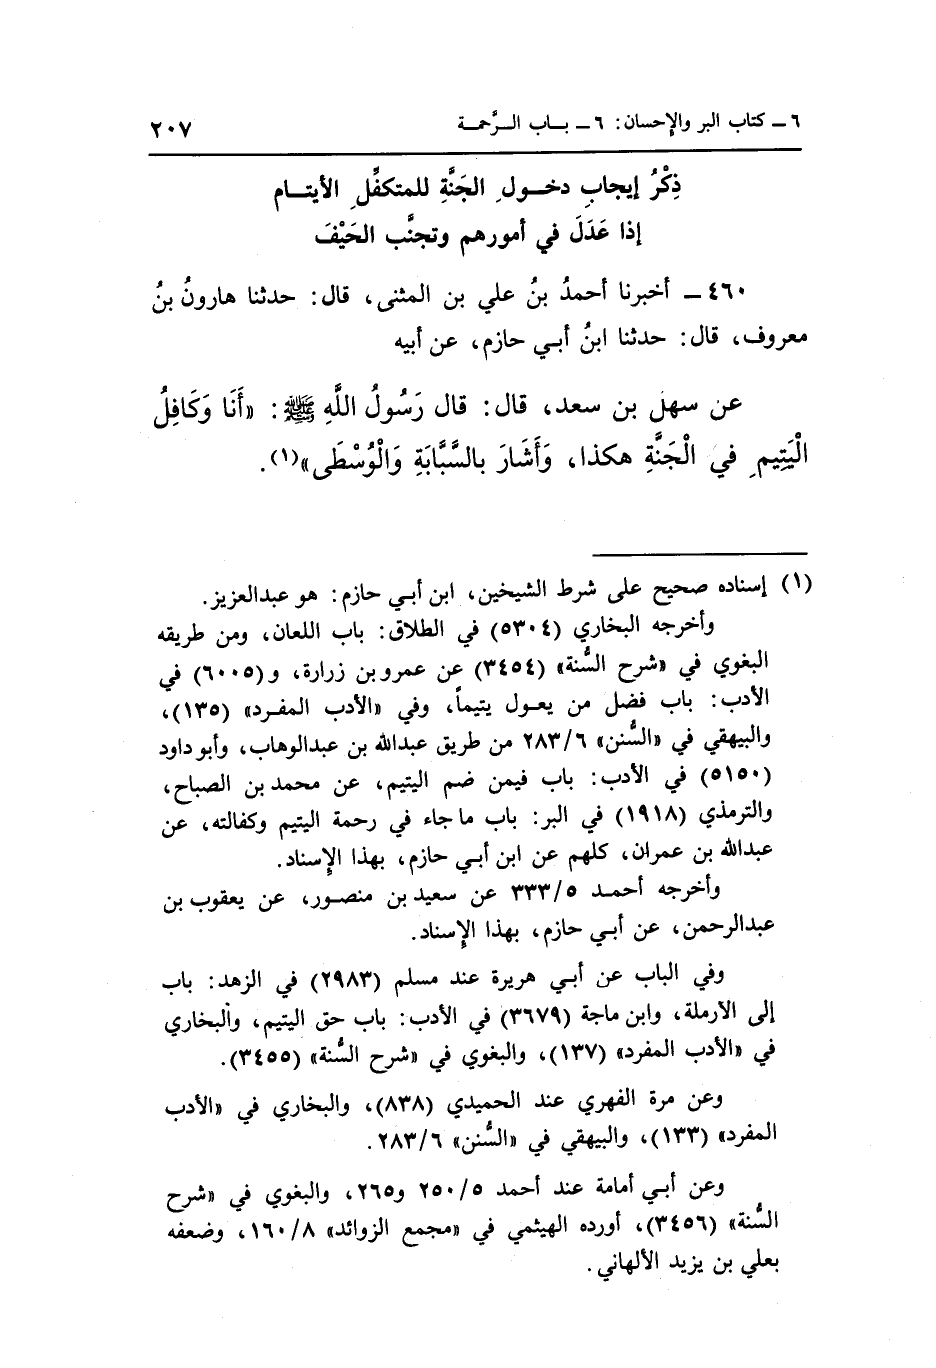 ٦ ـ كتاب البر والإحسان: ٦ ـ بـاب الـرَّحمـة ٢٠٧
ذِكْرُ إيجابِ دخـولِ الجَنَّةِ للمتكفِّلِ الأيتـام
إذا عَدَلَ في أمورهم وتجنَّب الحَيْفَ
٤٦٠ ـ أخبرنا أحمدُ بنُ علي بن المثنى، قال: حدثنا هارونُ بنُ
معروف، قال: حدثنا ابنُ أبـي حازم، عن أبيه
عن سهل بن سعد، قال: قال رَسُولُ اللَّهِ ﷺ: «أَنَا وَكَافِلُ
الْيَتِيمِ في الْجَنَّةِ هكذا، وَأَشَارَ بالسَّبَّابَةِ وَالْوُسْطَى»(١).
(١) إسناده صحيح على شرط الشيخين، ابن أبـي حازم: هو عبدالعزيز.
وأخرجه البخاري (٥٣٠٤) في الطلاق: باب اللعان، ومن طريقه
البغوي في «شرح السُّنة» (٣٤٥٤) عن عمرو بن زرارة، و(٦٠٠٥) في
الأدب: باب فضل من يعـول يتيماً، وفي «الأدب المفـرد» (١٣٥)،
والبيهقي في «السُّنن» ٢٨٣/٦ من طريق عبدالله بن عبدالوهاب، وأبو داود
(٥١٥٠) في الأدب: باب فيمن ضم اليتيم، عن محمد بن الصباح،
والترمذي (١٩١٨) في البر: باب ما جاء في رحمة اليتيم وكفالته، عن
عبدالله بن عمران، كلهم عن ابن أبـي حازم، بهذا الإسناد.
وأخرجه أحمـد ٣٣٣/٥ عن سعيد بن منصـور، عن يعقوب بن
عبدالرحمن، عن أبـي حازم، بهذا الإسناد.
وفي الباب عن أبـي هريرة عند مسلم (٢٩٨٣) في الزهد: باب
إلى الأرملة، وابن ماجة (٣٦٧٩) في الأدب: باب حق اليتيم، والبخاري
في «الأدب المفرد» (١٣٧)، والبغوي في «شرح السُّنة» (٣٤٥٥).
وعن مرة الفهري عند الحميدي (٨٣٨)، والبخاري في «الأدب
المفرد» (١٣٣)، والبيهقي في «السُّنن» ٢٨٣/٦.
وعن أبـي أمامة عند أحمد ٢٥٠/٥ و٢٦٥، والبغوي في «شرح
السُّنة» (٣٤٥٦)، أورده الهيثمي في «مجمع الزوائد» ١٦٠/٨، وضعفه
بعلي بن يزيد الألهاني.